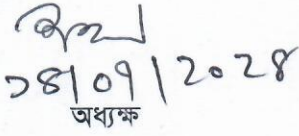 ১৪/০৭/২০২৪
অধ্যক্ষ